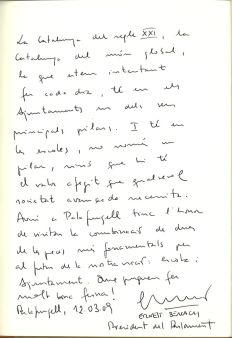 La Catalunya del segle XXI, la
Catalunya del món global,
la que estem intentant
fer cada dia, té en els
ajuntaments un dels seus
principals pilars. I té en
les escoles, no només un
pilar, sinó que hi té
el valor afegit que qualsevol
societat avançada necessita.
Avui a Palafrugell tinc l'honor
de visitar la combinació de dues
de les peces més fonamentals per
al futur de la nostra nació: escola i
Ajuntament. Que puguem fer
molt bona feina!
Palafrugell, 12.03.09
ERNEST BENACH
President del Parlament